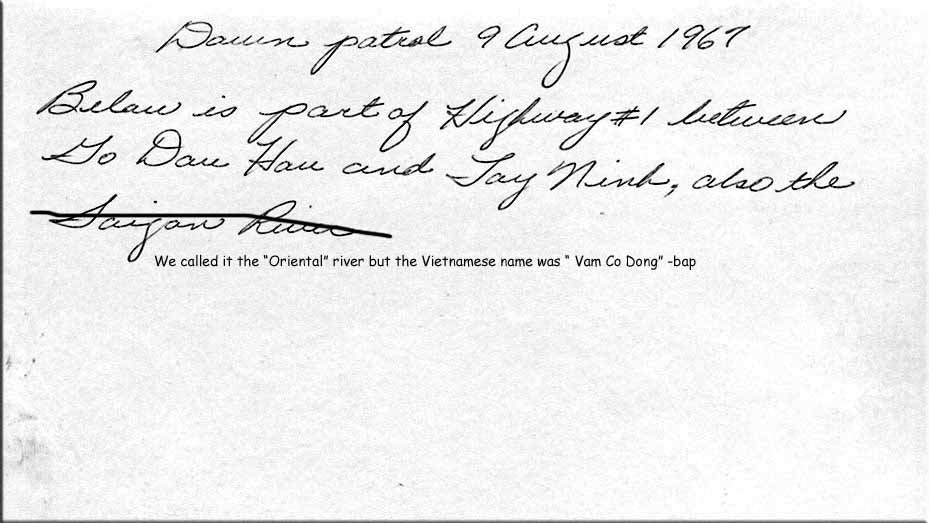 Dawn patrol 9 August 1967
Below is part of Highway #1 between
Go Dau Hau and Tay Ninh, also the
Saigon River
We called it the “Oriental” river but the Vietnamese name was “ Vam Co Dong” -bap